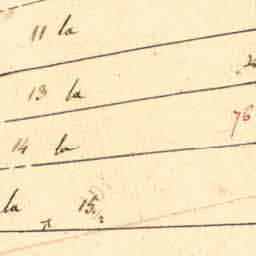 11 la
13 la
76
14 la
la 15½